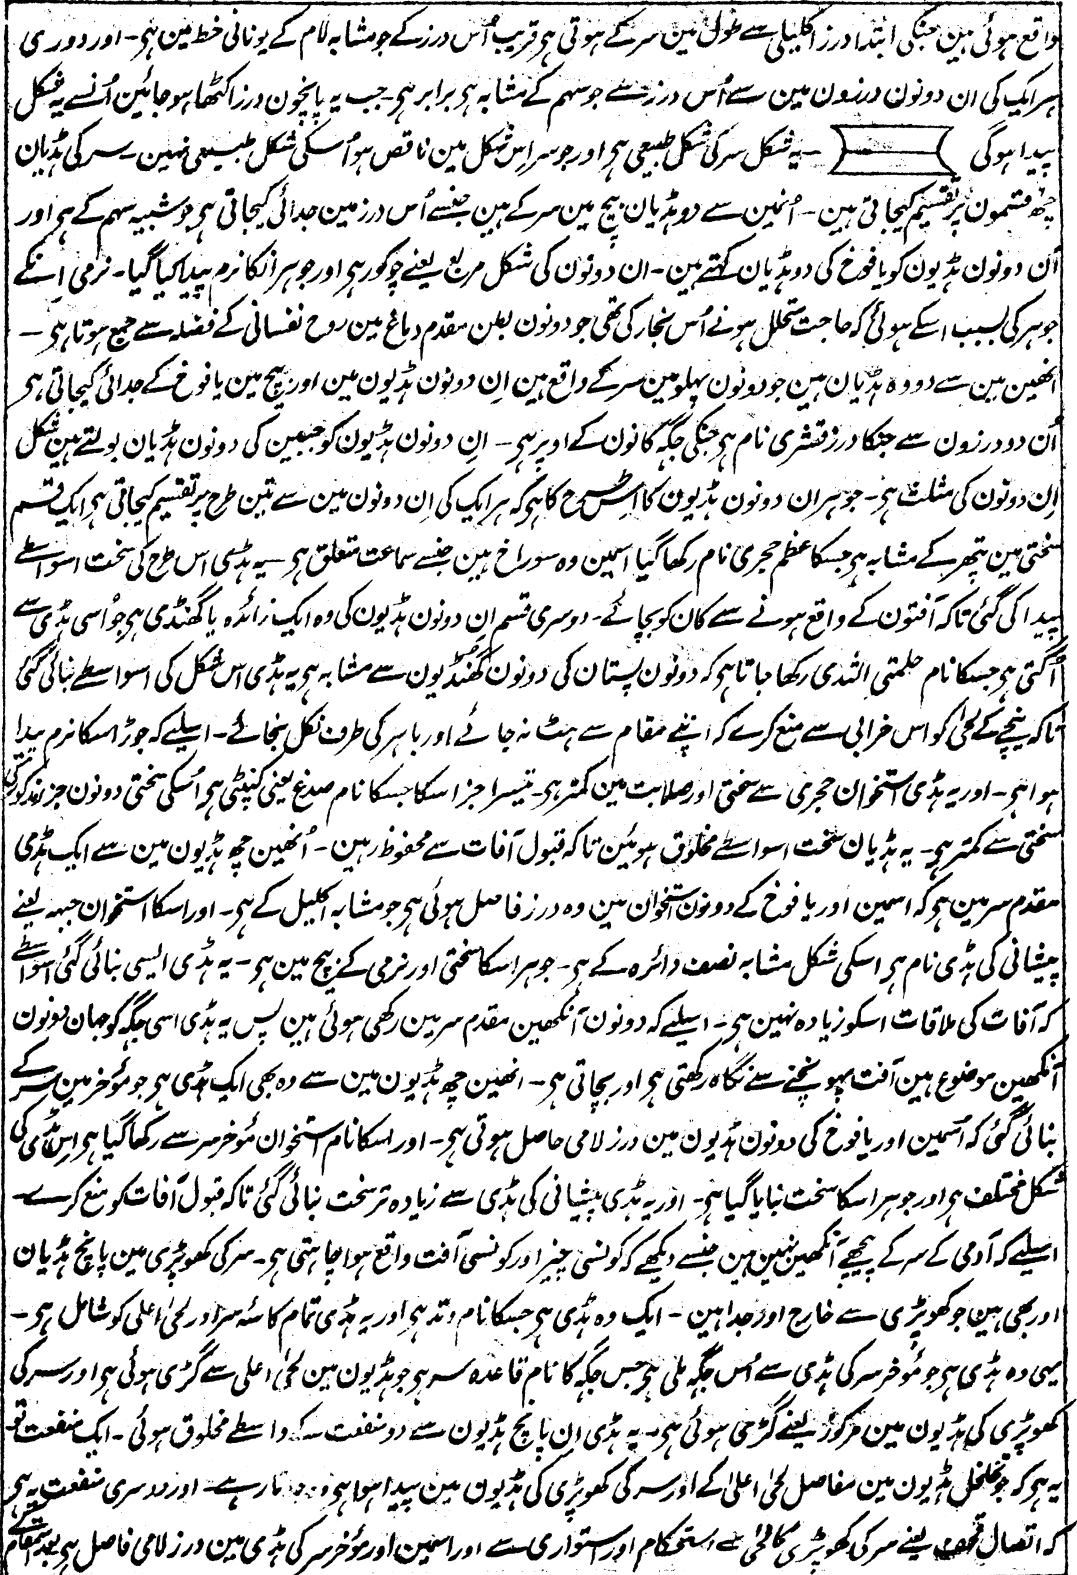 واقع ہوئی ہین جنکی ابتدا درز اکلیلی سے طول مین سر کے ہوتی ہی قریب اُس درز کے جو مشابہ لام کے یونانی خط مین ہی۔ اور دوری
ہر ایک کی ان دونون درزون مین سے اُس درز سے جو سہم کے مشابہ ہی برابر ہی۔ جب یہ پانچون درز اکٹھا ہو جائین اُنسے یہ شکل
پیدا ہوگی ۔ یہ شکل سر کی شکل طبیعی ہی اور جو سر اس شکل مین ناقص ہو اُسکی شکل طبیعی نہین۔ سر کی ہڈیان
چھ قسمون پر تقسیم کیجاتی ہین۔ اُنمین سے دو ہڈیان بیچ مین سر کے ہین جنسے اُس درز مین جدائی کیجاتی ہی جو شبیہ سہم کے ہی اور
اُن دونون ہڈیون کو یافوخ کی دو ہڈیان کہتے ہین۔ ان دونون کی شکل مربع یعنے چوکور ہی اور جوہر انکا نرم پیدا کیا گیا۔ نرمی اِنکے
جوہر کی بسبب اسکے ہوئی کہ حاجت متحلل ہونے اُس بخار کی تھی جو دونون بطن مقدم دماغ مین روح نفسانی کے فضلہ سے جمع ہوتا ہی۔
انھین مین سے دو وہ ہڈیان ہین جو دونون پہلو مین سر کے واقع ہین اِن دونون ہڈیون مین اور بیچ مین یافوخ کے جدائی کیجاتی ہی
اُن دو درزون سے جنکا درز قشری نام ہی جنکی جگہ کانون کے اوپر ہی۔ اِن دونون ہڈیون کو جبین کی دونون ہڈیان بولتے ہین شکل
اِن دونون کی مثلث ہی۔ جوہر ان دونون ہڈیون کا اس طرح کا ہی کہ ہر ایک کی اِن دونون مین سے تین طرح پر تقسیم کیجاتی ہی ایک قسم
سختی مین پتھر کے مشابہ ہی جسکا عظم حجری نام رکھا گیا اسمین وہ سوراخ ہین جنسے سماعت متعلق ہی۔ یہ ہڈی اس طرح کی سخت اسواسطے
پیدا کی گئی تاکہ آفتون کے واقع ہونے سے کان کو بچائے۔ دوسری قسم ان دونون ہڈیون کی وہ ایک زائدہ یا گھنڈی ہی جو اُسی ہڈی سے
اُگتی ہی جسکا نام حلمتی الثدی رکھا جاتا ہی کہ دونون پستان کی دونون گھنڈیون سے مشابہ ہی یہ ہڈی اس شکل کی اسواسطے بنائی گئی
تاکہ نیچے کے لحی کو اس خرابی سے منع کرے کہ اپنے مقام سے ہٹ نہ جائے اور باہر کی طرف نکل نجائے۔ اسلیے کہ جوڑ اسکا نرم پیدا
ہوا ہی۔ اور یہ ہڈی استخوان حجری سے سختی اور صلابت مین کمتر ہی۔ تیسرا جز اسکا جسکا نام صدغ یعنی کنپٹی ہی اُسکی سختی دونون جز مذکور کی
سختی سے کمتر ہی۔ یہ ہڈیان سخت اسواسطے مخلوق ہوئین تاکہ قبول آفات سے محفوظ رہین۔ اُنھین چھ ہڈیون مین سے ایک ہڈی
مقدم سر مین ہی کہ اسمین اور یافوخ کے دونون استخوان مین وہ درز فاصل ہوئی ہی جو مشابہ اکلیل کے ہی۔ اور اسکا استخوان جبہہ یعنے
پیشانی کی ہڈی نام ہی اسکی شکل مشابہ نصف دائرہ کے ہی۔ جوہر اسکا سختی اور نرمی کے بیچ مین ہی۔ یہ ہڈی ایسی بنائی گئی اسواسطے
کہ آفات کی ملاقات اسکو زیادہ نہین ہی۔ اسلیے کہ دونون آنکھین مقدم سر مین رکھی ہوئی ہین پس یہ ہڈی اسی جگہ کو جہان دونون
آنکھین موضوع ہین آفت پہونچنے سے نگاہ رکھتی ہی اور بچاتی ہی۔ انھین چھ ہڈیون مین سے وہ بھی ایک ہڈی ہی جو مؤخر مین سر کے
بنائی گئی کہ اُسمین اور یافوخ کی دونون ہڈیون مین درز لامی حاصل ہوتی ہی۔ اور اسکا نام استخوان مؤخر سر سے رکھا گیا ہی اس ہڈی کی
شکل مختلف ہی اور جوہر اسکا سخت بنایا گیا ہی۔ اور یہ ہڈی پیشانی کی ہڈی سے زیادہ تر سخت بنائی گئی تاکہ قبول آفات کو منع کرے۔
اسلیے کہ آدمی کے سر کے پیچھے آنکھین نہین ہین جنسے دیکھے کہ کونسی چیز اور کونسی آفت واقع ہوا چاہتی ہی۔ سر کی کھوپڑی مین پانچ ہڈیان
اور بھی ہین جو کھوپڑی سے خارج اور جدا ہین۔ ایک وہ ہڈی ہی جسکا نام وتد ہی اور یہ ہڈی تمام کاسۂ سر اور لحی اعلی کو شامل ہی۔
یہی وہ ہڈی ہی جو مؤخر سر کی ہڈی سے اُس جگہ ملی ہی جس جگہ کا نام قاعدہ سر ہی جو ہڈیون مین لحی اعلی سے گڑی ہوئی ہی اور سر کی
کھوپڑی کی ہڈیون مین مرکوز یعنے گڑی ہوئی ہی۔ یہ ہڈی ان پانچ ہڈیون سے دو منفعت کے واسطے مخلوق ہوئی۔ ایک منفعت تو
یہ ہی کہ جو تخلخل ہڈیون مین مفاصل لحی اعلیٰ کے اور سر کی کھوپڑی کی ہڈیون مین پیدا ہوا ہی رہے۔ اور دوسری منفعت یہ ہی
کہ اتصال قحف یعنے سر کی کھوپڑی کا لحی سے استحکام اور استواری سے اور اسمین اور مؤخر سر کی ہڈی مین درز لامی فاصل ہی